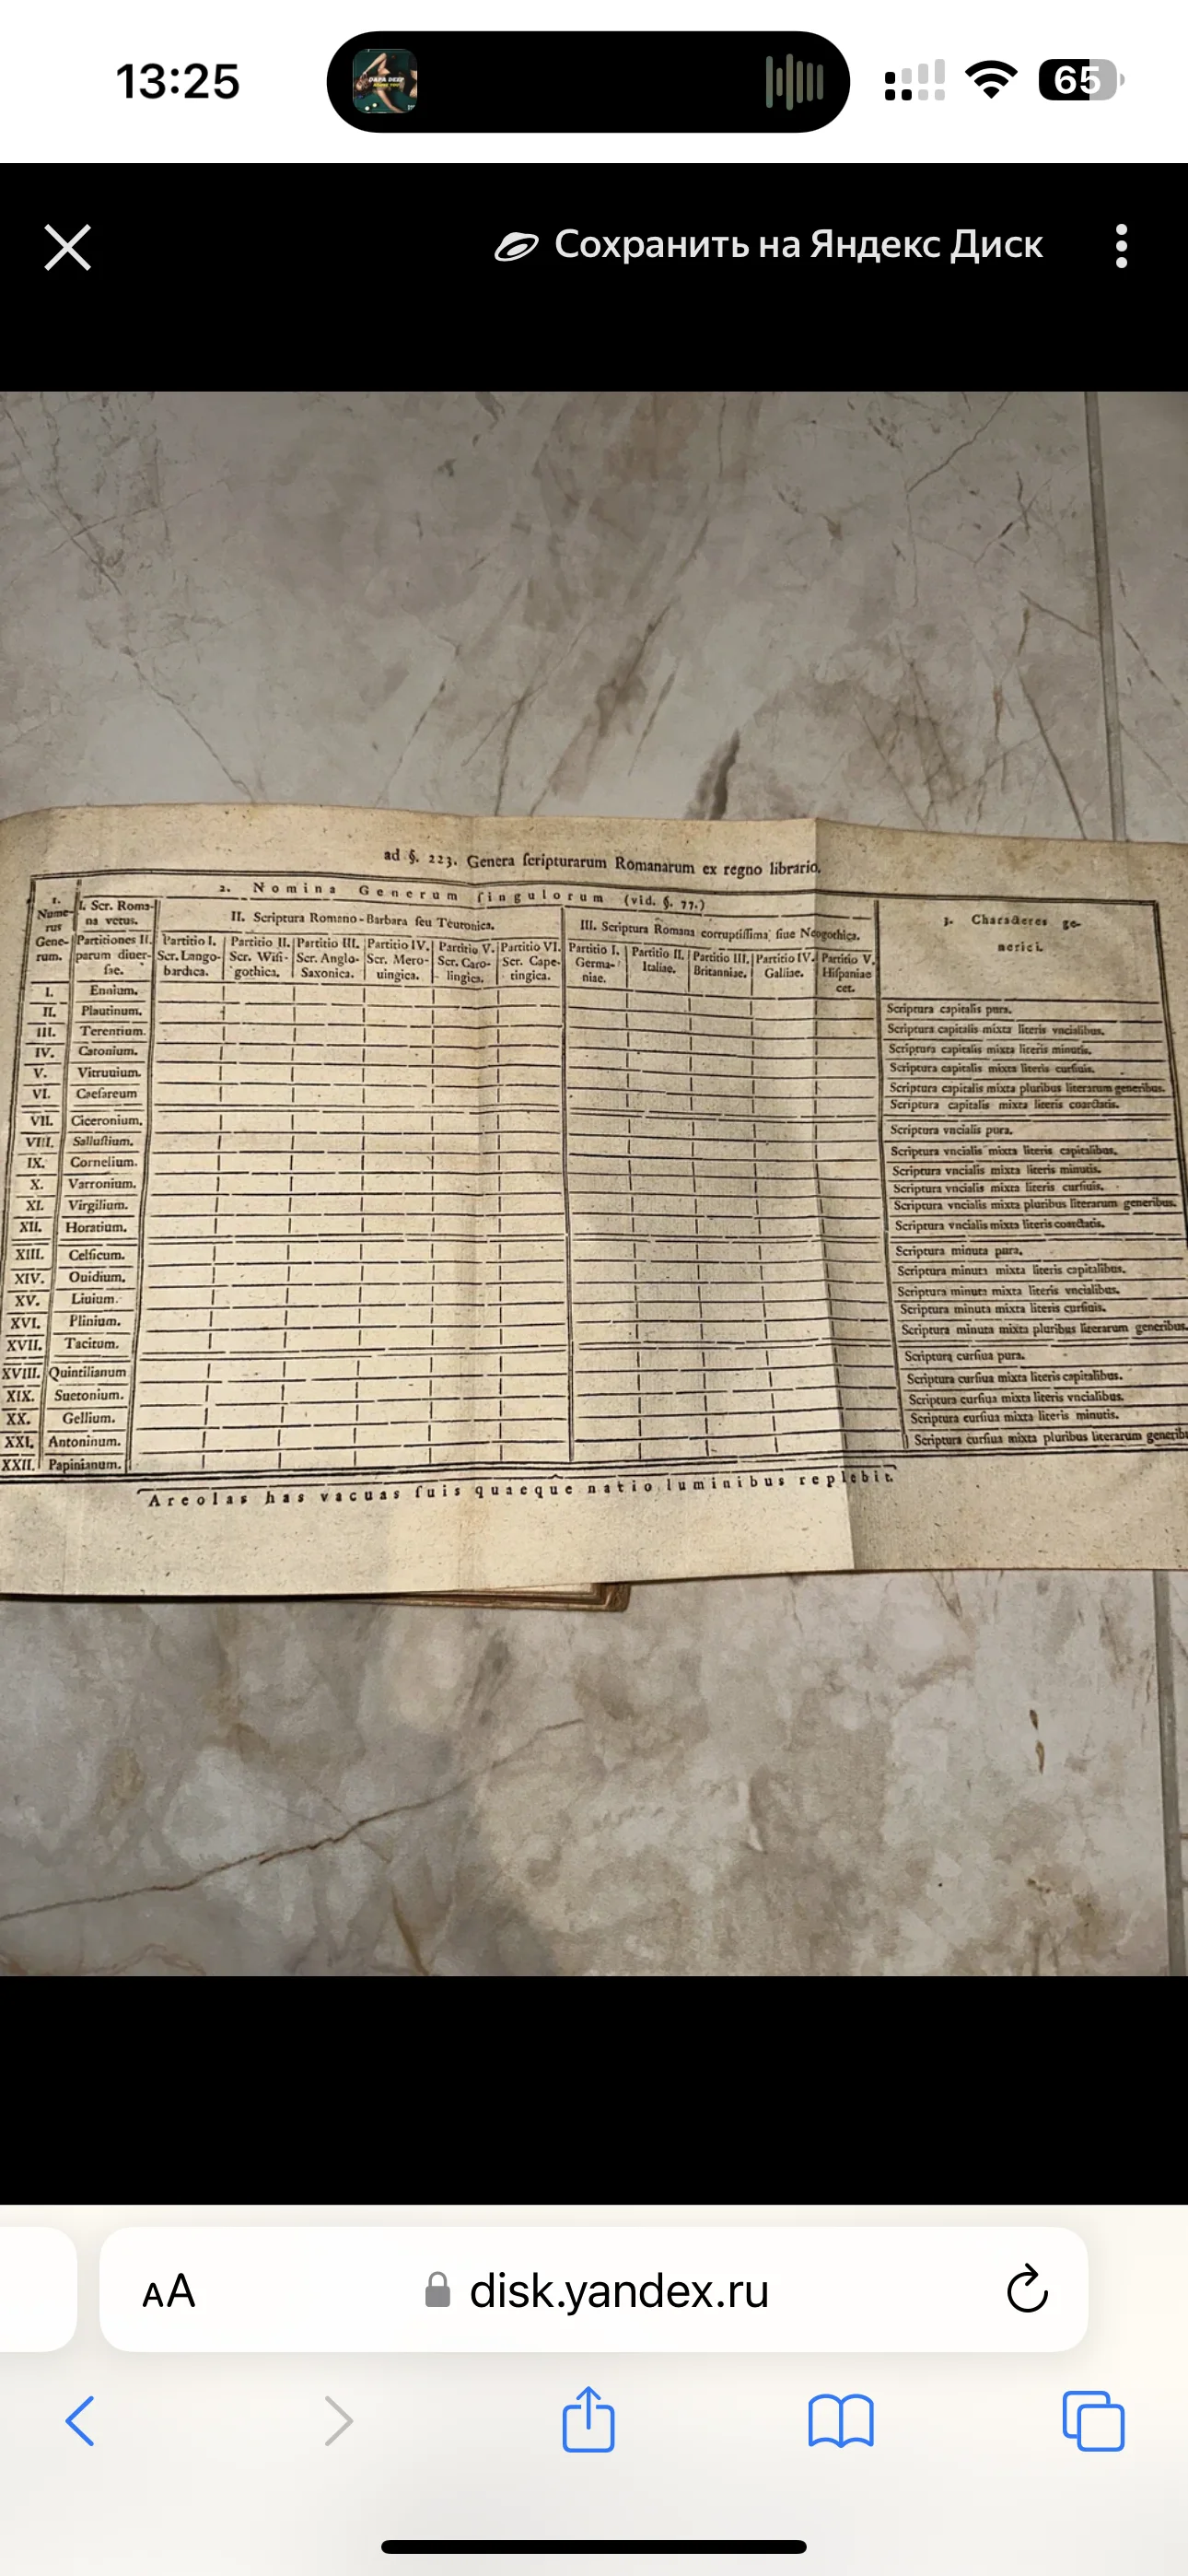 13:25
65
Сохранить на Яндекс Диск
ad §. 223. Genera ſcripturarum Romanarum ex regno librario.
1. Nume-
rus
Gene-
rum.
2. Nomina Generum ſingulorum (vid. §. 77.)
I. Scr. Roma-
na vetus.
Partitiones II.
parum diuer-
ſae.
II. Scriptura Romano-Barbara ſeu Teutonica.
Partitio I.
Scr. Lango-
bardica.
Partitio II.
Scr. Wiſi-
gothica.
Partitio III.
Scr. Anglo-
Saxonica.
Partitio IV.
Scr. Mero-
uingica.
Partitio V.
Scr. Caro-
lingica.
Partitio VI.
Scr. Cape-
tingica.
III. Scriptura Romana corruptiſſima ſiue Neogothica.
Partitio I.
Germa-
niae.
Partitio II.
Italiae.
Partitio III.
Britanniae.
Partitio IV.
Galliae.
Partitio V.
Hiſpaniae
cet.
3. Characteres ge-
nerici.
I. Ennium. Scriptura capitalis pura.
II. Plautinum. Scriptura capitalis mixta literis vncialibus.
III. Terentium. Scriptura capitalis mixta literis minutis.
IV. Catonium. Scriptura capitalis mixta literis curſiuis.
V. Vitruuium. Scriptura capitalis mixta pluribus literarum generibus.
VI. Caeſareum Scriptura capitalis mixta literis coarctatis.
VII. Ciceronium. Scriptura vncialis pura.
VIII. Salluſtium. Scriptura vncialis mixta literis capitalibus.
IX. Cornelium. Scriptura vncialis mixta literis minutis.
X. Varronium. Scriptura vncialis mixta literis curſiuis.
XI. Virgilium. Scriptura vncialis mixta pluribus literarum generibus.
XII. Horatium. Scriptura vncialis mixta literis coarctatis.
XIII. Celſicum. Scriptura minuta pura.
XIV. Ouidium. Scriptura minuta mixta literis capitalibus.
XV. Liuium. Scriptura minuta mixta literis vncialibus.
XVI. Plinium. Scriptura minuta mixta literis curſiuis.
XVII. Tacitum. Scriptura minuta mixta pluribus literarum generibus.
XVIII. Quintilianum Scriptura curſiua pura.
XIX. Suetonium. Scriptura curſiua mixta literis capitalibus.
XX. Gellium. Scriptura curſiua mixta literis vncialibus.
XXI. Antoninum. Scriptura curſiua mixta literis minutis.
XXII. Papinianum. Scriptura curſiua mixta pluribus literarum generib
Areolas has vacuas ſuis quaeque natio luminibus replebit.
AA
disk.yandex.ru